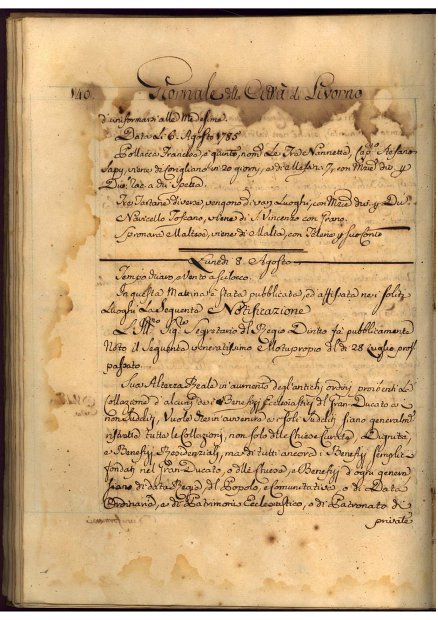 140. Giornale della Città di Livorno
d'uniformarsi alle Medesime.
Data li 6. Agosto 1785
Pollacca Francese, a quinto, nom.ª Le Tre Nannette, Cap.no Stefano
viene di in 20 giorni, e di 7, con Merci div.e p
Div.i, e a di Spetta.
Tre Tartane diverse, vengono di vari Luoghi, con Merci div.e p Div.i
Navicello Toscano, viene di S. Vincenzo con Grano.
Speronara Maltese, viene di Malta, con Telerie p suo Conto
Lunedì 8. Agosto
Tempo Vario, e Vento a Scilocco.
In questa Mattina è Stata pubblicata, ed affissata nei soliti
Luoghi La Seguente Notificazione
L'Ill.mo Sig.re Segretario del Regio Diritto fà pubblicamente
Noto il Seguente veneratissimo Motuproprio de' dì 28 Luglio pross.
passato.
Sua Altezza Reale in aumento degl'antichi ordini proibenti le
Collazioni d'alcuni dei Benefizj Ecclesiastici del Gran Ducato ai
non Sudditi, Vuole che in avvenire ai soli Sudditi siano generalm.e
ristrette tutte le Collazioni, non solo delle Chiese Curate, Dignità,
e Benefizj Residenziali, ma di tutti ancora i Benefizj Semplici
fondati nel Gran Ducato, o delle Chiese, e Benefizj d'ogni genere
siano di data Regia, del Popolo, e Comunitative, o di Data
Ordinario, e di Patrimonio Ecclesiastico, o di Patronato di
privato